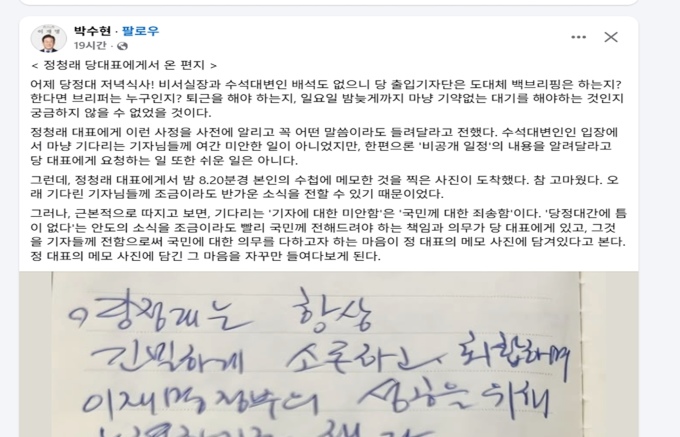 박수현 · 팔로우
19시간 ·
< 정청래 당대표에게서 온 편지 >
어제 당정대 저녁식사! 비서실장과 수석대변인 배석도 없으니 당 출입기자단은 도대체 백브리핑은 하는지?
한다면 브리퍼는 누구인지? 퇴근을 해야 하는지, 일요일 밤늦게까지 마냥 기약없는 대기를 해야하는 것인지
궁금하지 않을 수 없었을 것이다.
정청래 대표에게 이런 사정을 사전에 알리고 꼭 어떤 말씀이라도 들려달라고 전했다. 수석대변인인 입장에
서 마냥 기다리는 기자님들께 여간 미안한 일이 아니었지만, 한편으론 '비공개 일정'의 내용을 알려달라고
당 대표에게 요청하는 일 또한 쉬운 일은 아니다.
그런데, 정청래 대표에게서 밤 8.20분경 본인의 수첩에 메모한 것을 찍은 사진이 도착했다. 참 고마웠다. 오
래 기다린 기자님들께 조금이라도 반가운 소식을 전할 수 있기 때문이었다.
그러나, 근본적으로 따지고 보면, 기다리는 '기자에 대한 미안함'은 '국민께 대한 죄송함'이다. '당정대간에 틈
이 없다'는 안도의 소식을 조금이라도 빨리 국민께 전해드려야 하는 책임과 의무가 당 대표에게 있고, 그것
을 기자들께 전함으로써 국민에 대한 의무를 다하고자 하는 마음이 정 대표의 메모 사진에 담겨있다고 본다.
정 대표의 메모 사진에 담긴 그 마음을 자꾸만 들여다보게 된다.
당정대는 항상
긴밀하게 소통하고, 회합하며
이재명 정부의 성공을 위해